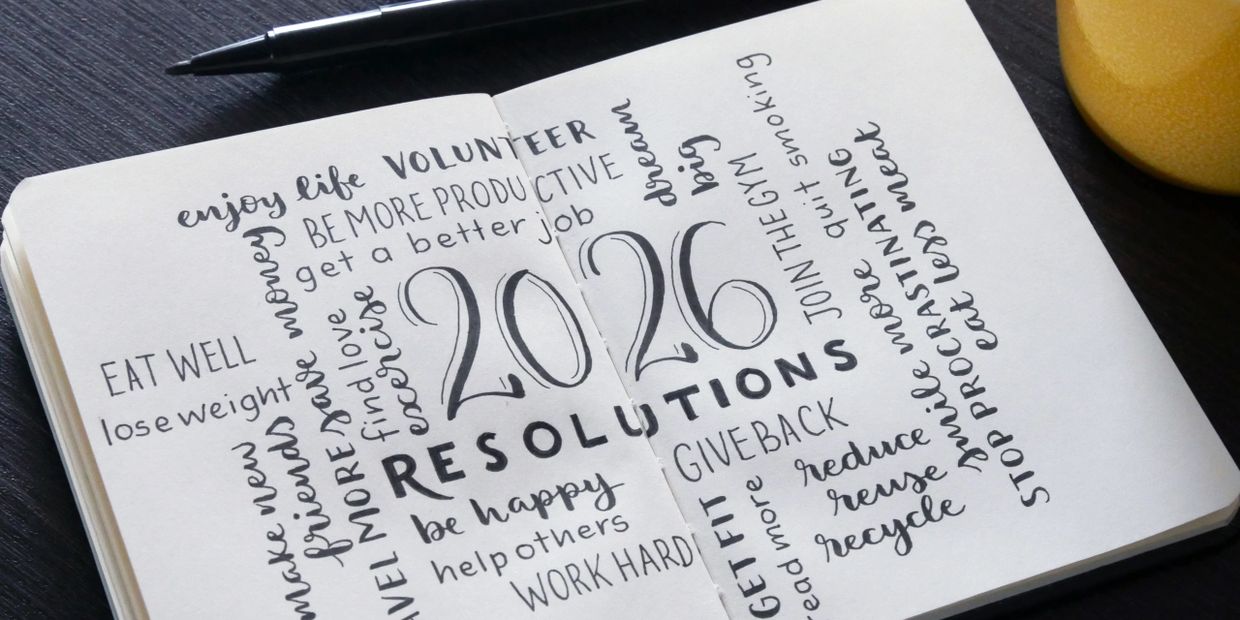 enjoy life
VOLUNTEER
BE MORE PRODUCTIVE
get a better job
dream
big
quit smoking
JOIN THE GYM
2026
RESOLUTIONS
EAT WELL
lose weight
save money
find love
excercise
make new
friends
MORE
be happy
help others
WORK HARD
GIVE BACK
reduce
reuse
recycle
GET FIT
more
smile more
STOP PROCRASTINATING
eat less meat